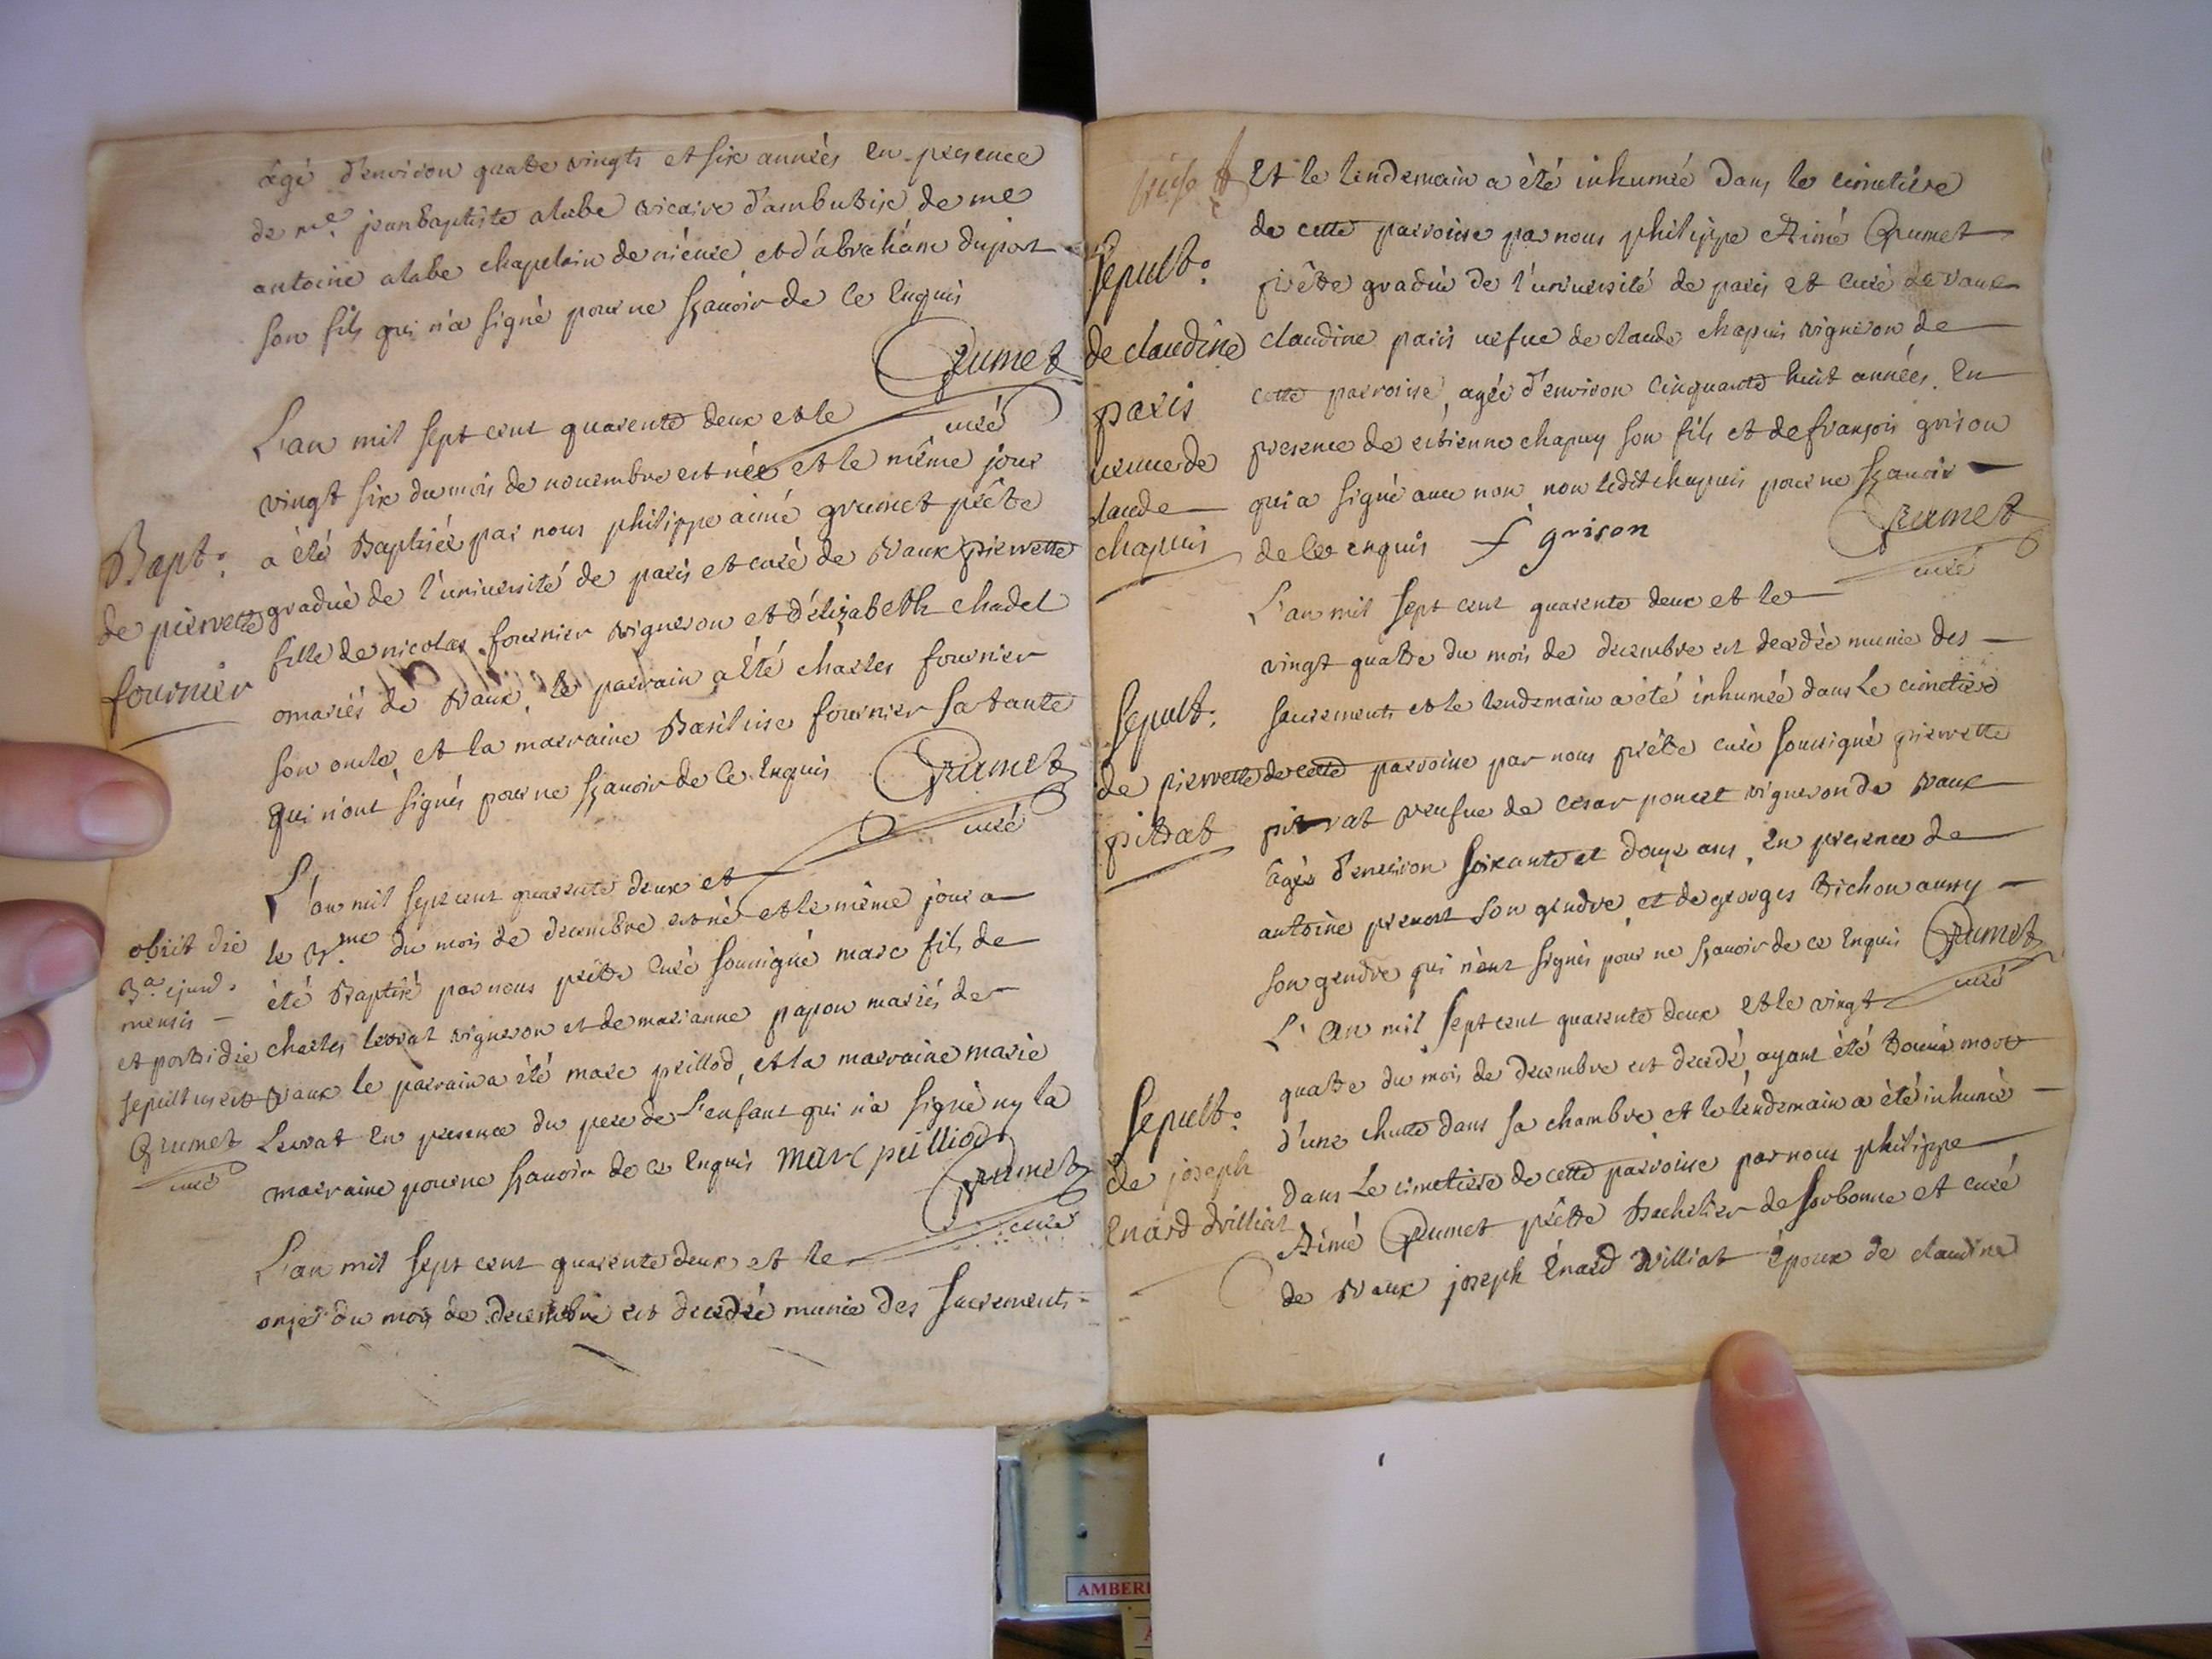 âgé d'environ quatre vingts et six années en presence
de mre. jean baptiste alabe vicaire d'ambutrix de me
antoine alabe chapelain de
et d'abraham duport
son fils qui n'a signé pour ne sçavoir de ce enquis
Grumet
curé
Bapt:
de pierrette
fournier
L'an mil sept cent quarente deux et le
vingt six du mois de novembre est née et le même jour
a été Baptisée par nous philippe aimé grumet prêtre
gradué de l'université de paris et curé de vaux pierrette
fille de nicolas fournier vigneron et d'élizabeth chadel
mariés de vaux, le parrain a été charles fournier
son oncle, et la marraine Basilisse fournier sa tante
qui n'ont signés pour ne sçavoir de ce enquis
Grumet
curé
obiit die
3a. ejusd.
mensis
et postridie
sepultus est
Grumet
curé
L'an mil sept cent quarente deux et
le
me du mois de decembre est né et le même jour a
été Baptisé par nous prêtre curé soussigné marc fils de
charles levrat vigneron et de marianne papon mariés de
vaux le parrain a été marc peillod, et la marraine marie
Levrat en presence du pere de l'enfant qui n'a signé ny la
marraine pour ne sçavoir de ce enquis marc peilliod
Grumet
curé
L'an mil sept cent quarente deux et le
onze du mois de decembre est decedée munie des sacrements
Sepult:
de claudine
paris
veuve de
claude
chapuis
et le lendemain a été inhumée dans le cimetiere
de cette parroisse par nous philippe Aimé Grumet
prêtre gradué de l'université de paris et curé de vaux
claudine paris vefve de claude chapuis vigneron de
cette parroisse, agée d'environ cinquante huit années. en
presence de estienne chapuy son fils et de françois grison
qui a signé avec nou non ledit chapuis pour ne sçavoir
de ce enquis f grison
Grumet
curé
Sepult:
de pierrette
pitrat
L'an mil sept cent quarente deux et le
vingt quatre du mois de decembre est decedée munie des
sacrements et le lendemain a été inhumée dans le cimetiere
de cette parroisse par nous prêtre curé soussigné pierrette
pitrat veufve de cesar poncet vigneron de vaux
âgée d'environ soixante et douze ans, en presence de
antoine prevost son gendre, et de georges Bichon aussy
son gendre qui n'ont signés pour ne sçavoir de ce enquis
Grumet
curé
Sepult:
de joseph
enard villiat
L'an mil sept cent quarente deux et le vingt
quatre du mois de decembre est decedé, ayant été trouvé mort
d'une chutte dans sa chambre et le lendemain a été inhumé
dans le cimetiere de cette parroisse par nous philippe
Aimé Grumet prêtre Bachelier de sorbonne et curé
de vaux joseph énard villiat époux de claudine
AMBERI